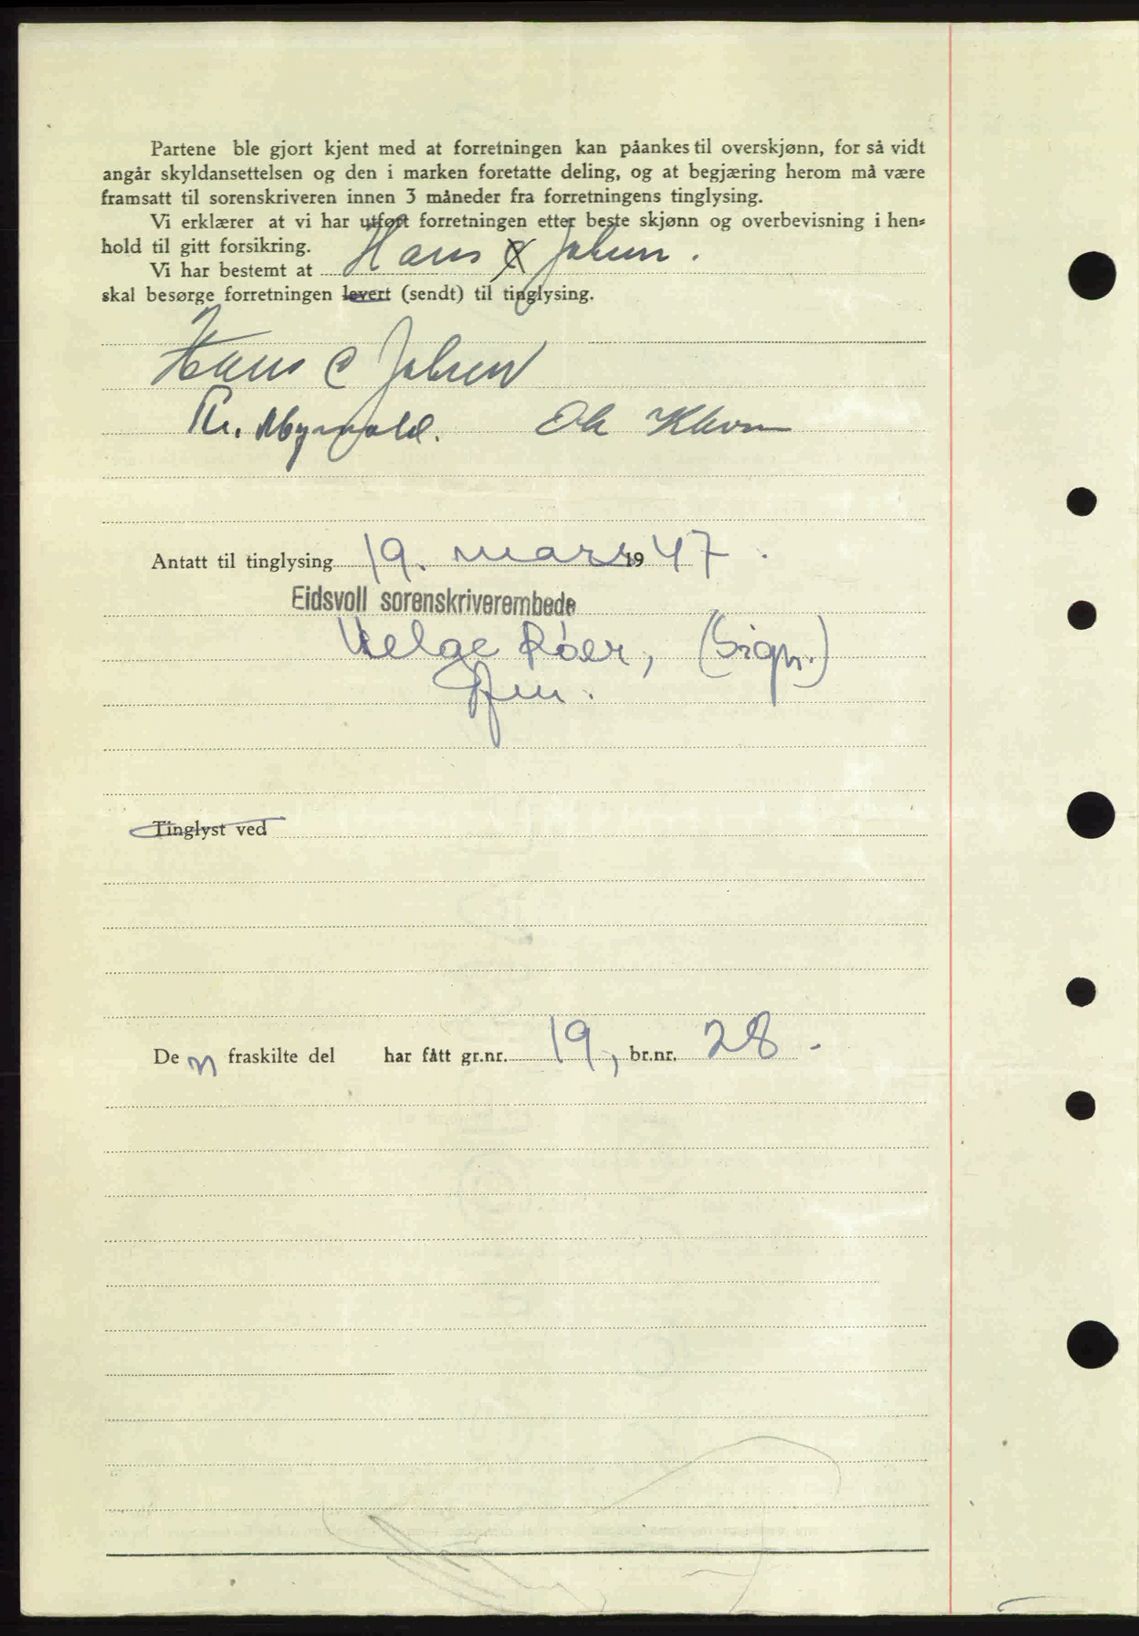 Partene ble gjort kjent med at forretningen kan påankes til overskjønn, for så vidt
angår skyldansettelsen og den i marken foretatte deling, og at begjæring herom må være
framsatt til sorenskriveren innen 3 måneder fra forretningens tinglysing.
Vi erklærer at vi har utført forretningen etter beste skjønn og overbevisning i hen-
hold til gitt forsikring.
Vi har bestemt at Hans C Jolsen.
skal besørge forretningen levert (sendt) til tinglysing.
Hans C Jolsen
Th. Myrvold. Ole
Antatt til tinglysing 19. mars 1947.
Eidsvoll sorenskriverembede
Helge Røer, (Sign.)
Tinglyst ved
De n fraskilte del har fått gr.nr. 19, br.nr. 28.